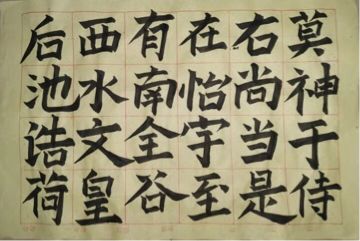 莫神于侍
右尚当是
在怡宇至
有南全谷
西水文皇
后池诰荷